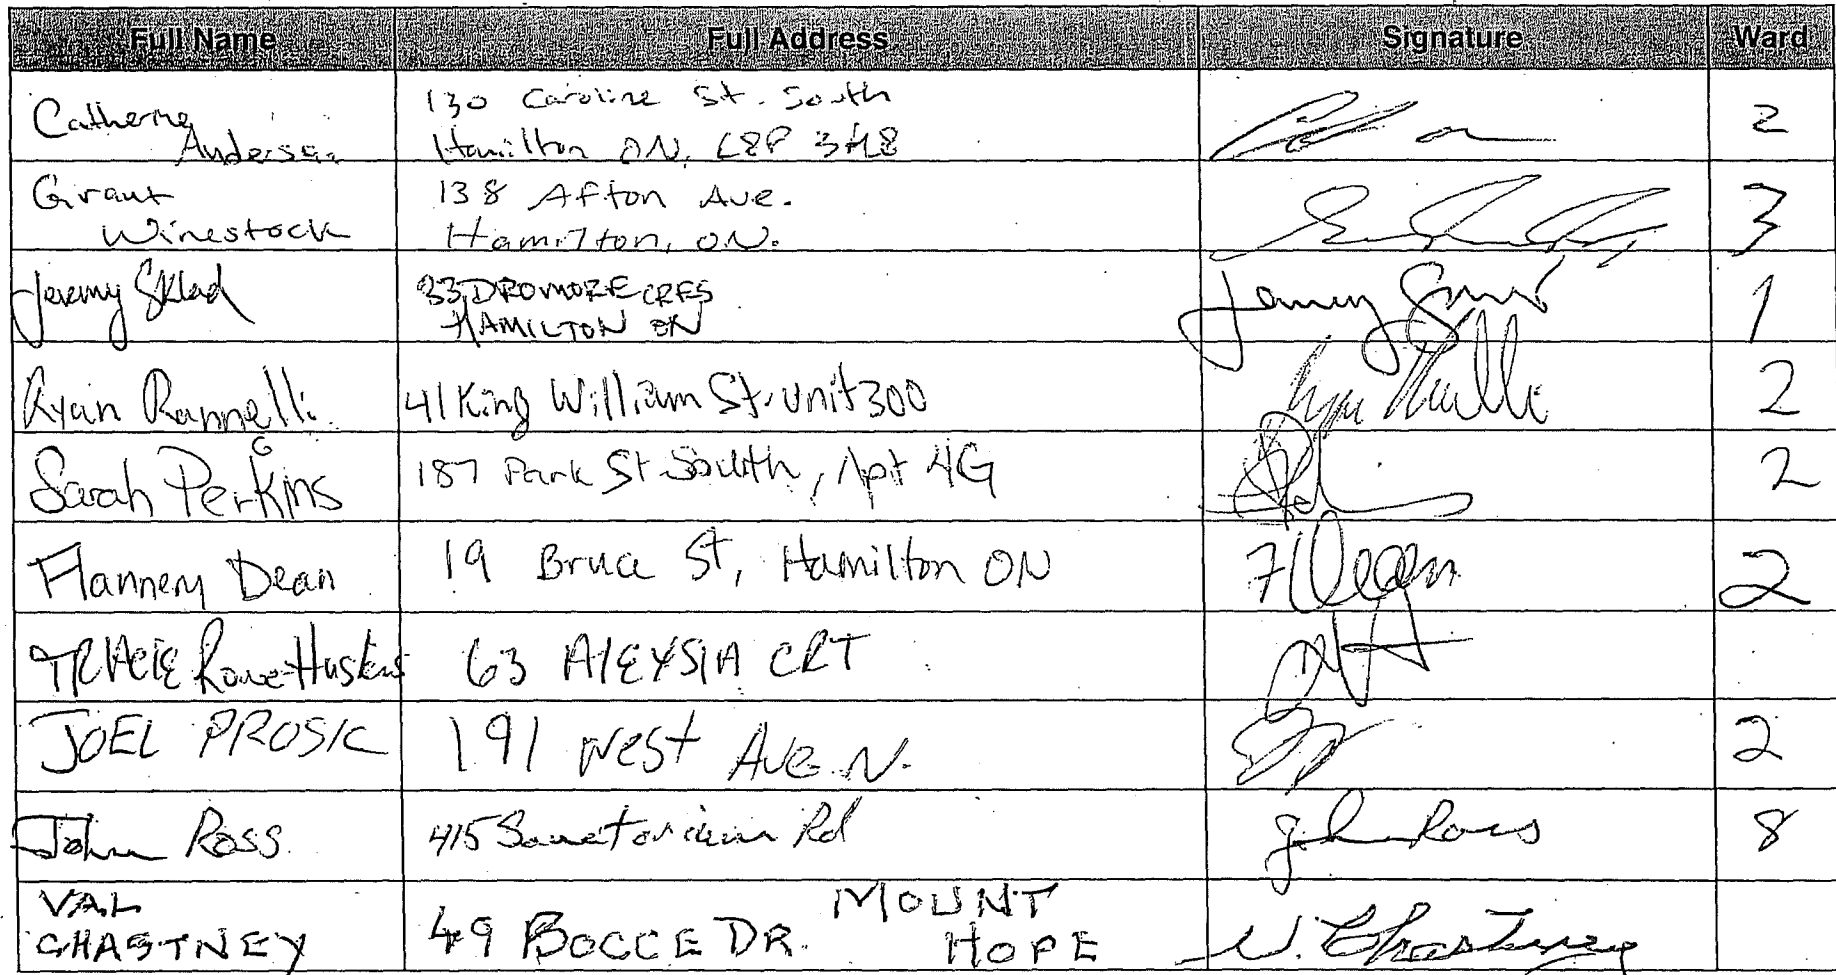 Full Name Full Address Signature Ward
Catherine
Anderson
130 Caroline St. South
Hamilton ON, L8P 3H8
2
Grant
Winestock
138 Afton Ave.
Hamilton, ON.
3
Jeremy Sklad
33 DROMORE CRES
HAMILTON ON
1
Ryan Rannelli
41 King William St. unit 300
2
Sarah Perkins
187 Park St South, Apt 4G
2
Flannery Dean
19 Bruce St, Hamilton ON
F Dean
2
TRACIE Rowe-Huskins
63 AlEYSIA CRT
JOEL PROSIC
191 West Ave. N.
2
John Ross
415 Sanatorium Rd
John Ross
8
VAL
CHASTNEY
49 BOCCE DR. MOUNT
HOPE
V. Chastney